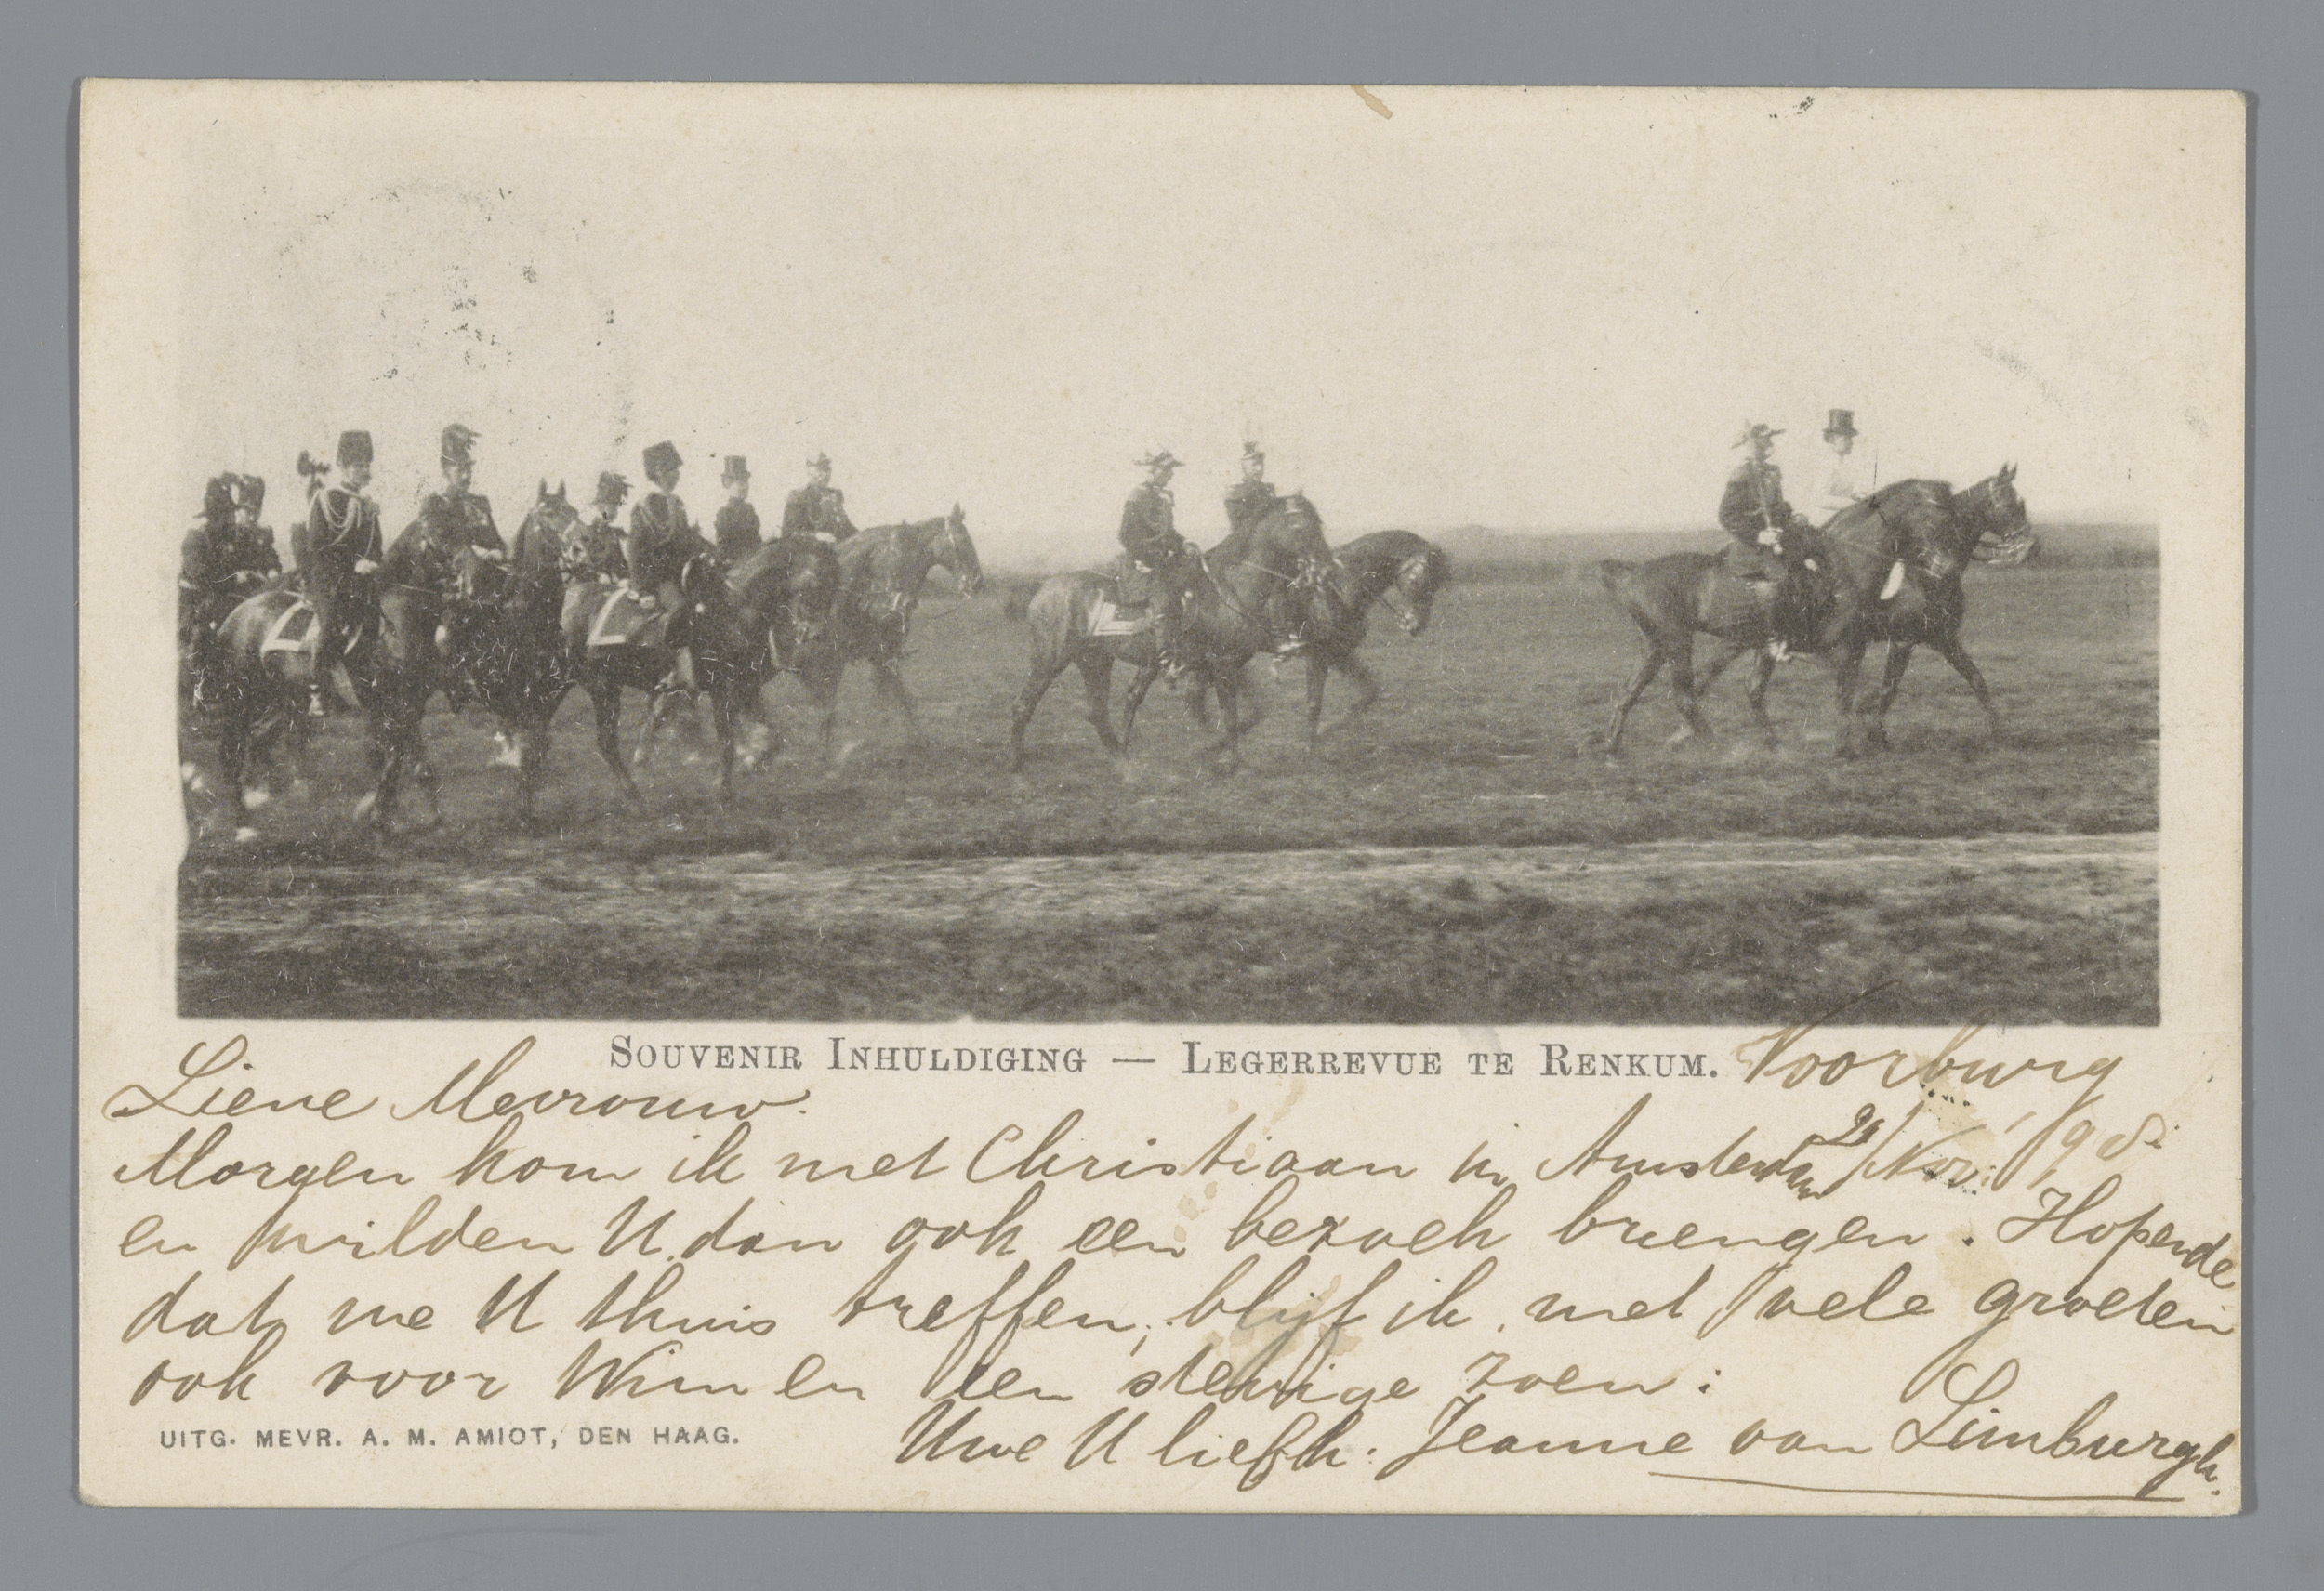 SOUVENIR INHULDIGING — LEGERREVUE TE RENKUM.
Voorburg
Lieve Mevrouw.
Nov. 98.
Morgen kom ik met Christiaan in Amsterdam
en wilden U dan ook een bezoek brengen. Hopende
dat we U thuis treffen, blijf ik, met vele groeten
ook voor Wim en een stevige zoen:
Uwe U liefh. Jeanne van Limburgh.
UITG. MEVR. A. M. AMIOT, DEN HAAG.